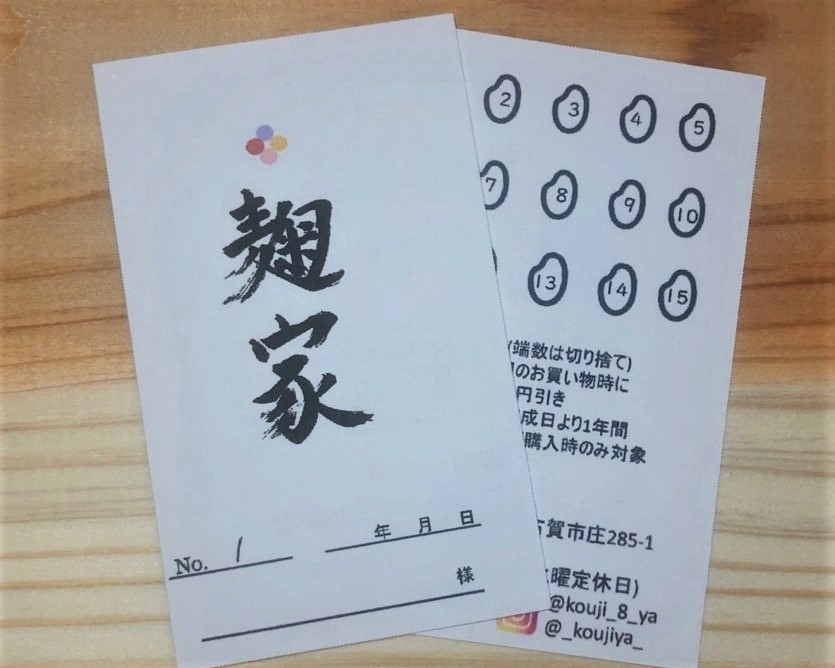 麹
家
No. 1 年 月 日
様
2 3 4 5
7 8 9 10
13 14 15
(端数は切り捨て)
のお買い物時に
円引き
成日より1年間
購入時のみ対象
賀市庄285-1
曜定休日)
@kouji_8_ya
@_koujiya_